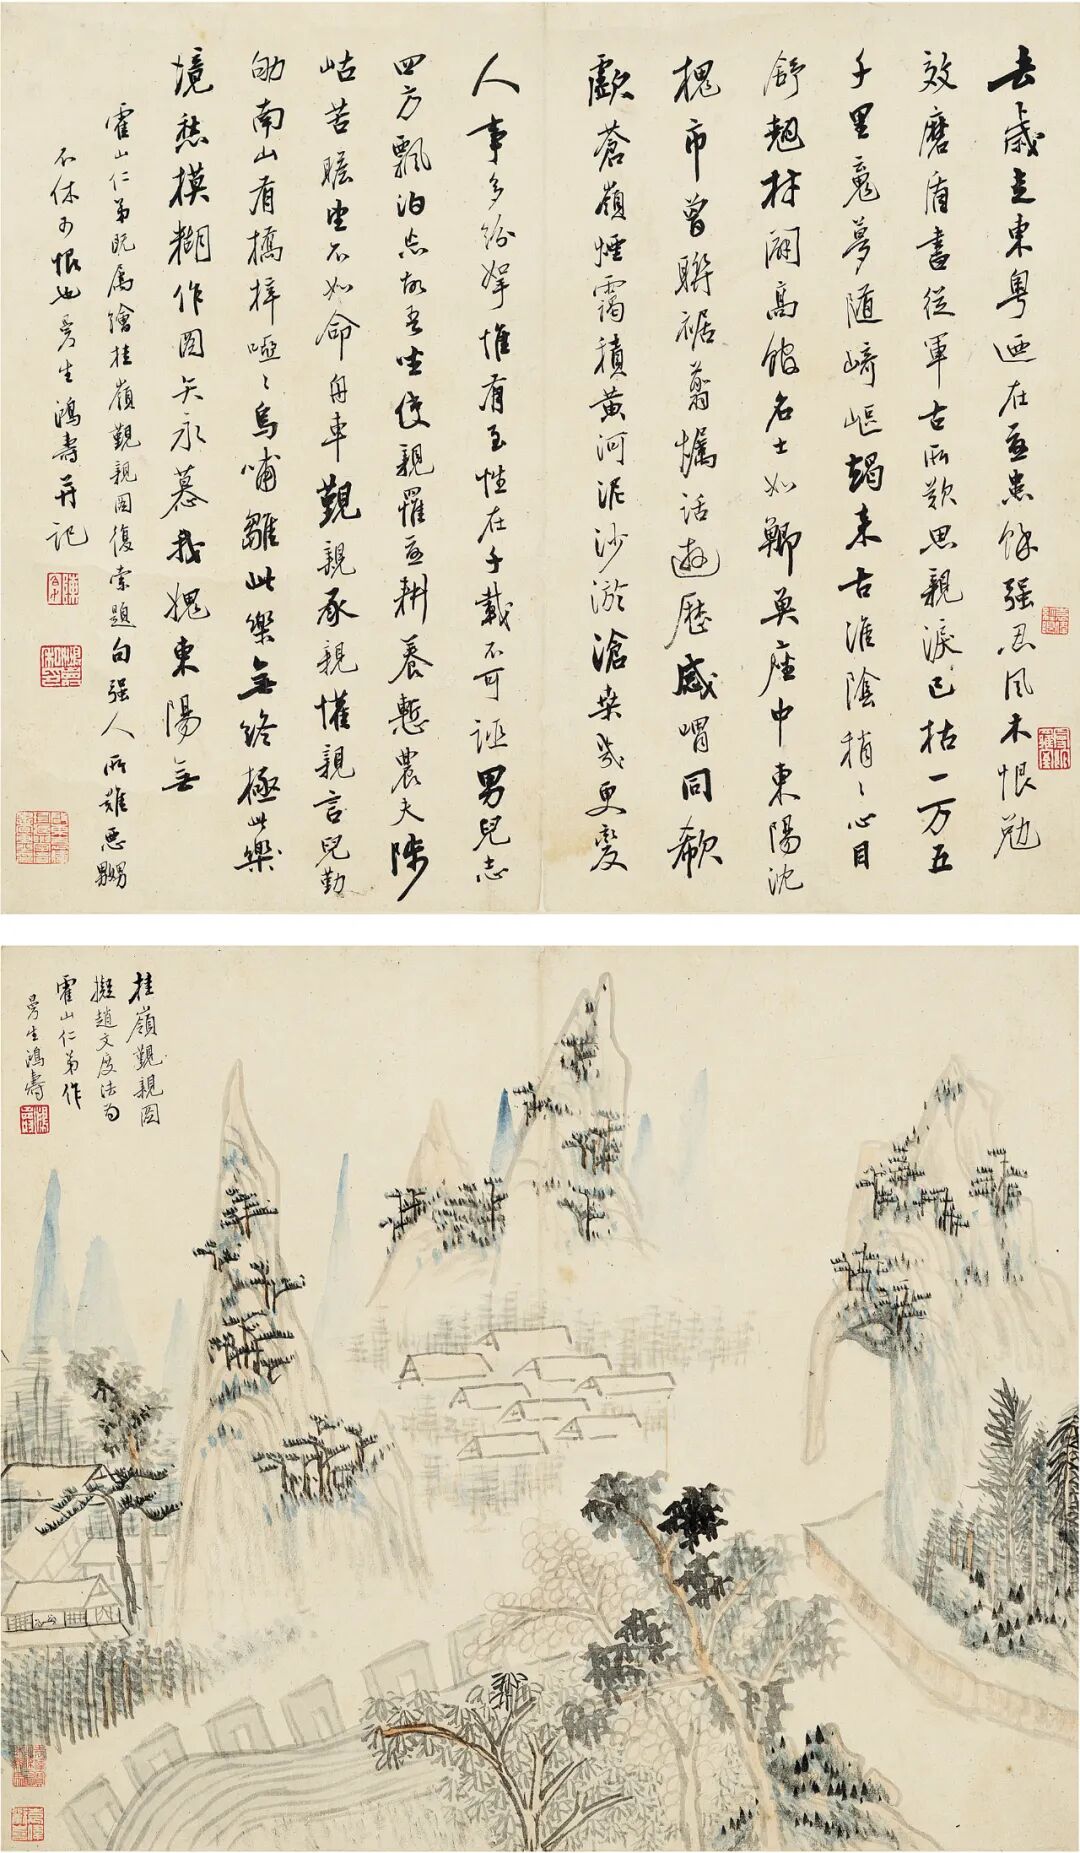 去歲走東粵迺在憂患餘强忍風木恨勉
效磨盾書從軍古所歎思親淚已枯一万五
千里魂夢隨崎嶇朅来古淮陰稍〻心目
舒翹材闢高館名士如鄭莫座中東陽沈
槐市曾聯裾翦燭話遊歷感喟同欷
歔蒼嶺煙靄積黄河泥沙淤滄桑幾更變
人事多紛挐惟有至性在千載不可誣男兒志
四方飄泊忘故吾坐使親罹憂耕養慙農夫陟
岵苦瞻望不如命舟車覲親承親懽親言兒勤
劬南山有橋梓啞〻烏哺雛此樂無終極此樂
境愁摸糊作圖矢永慕我媿東陽無
霍山仁弟既屬繪桂嶺覲親圖復索題句强人所難惡嬲
不休可恨也曼生鴻壽并記
桂嶺覲親圖
擬趙文度法为
霍山仁弟作
曼生鴻壽